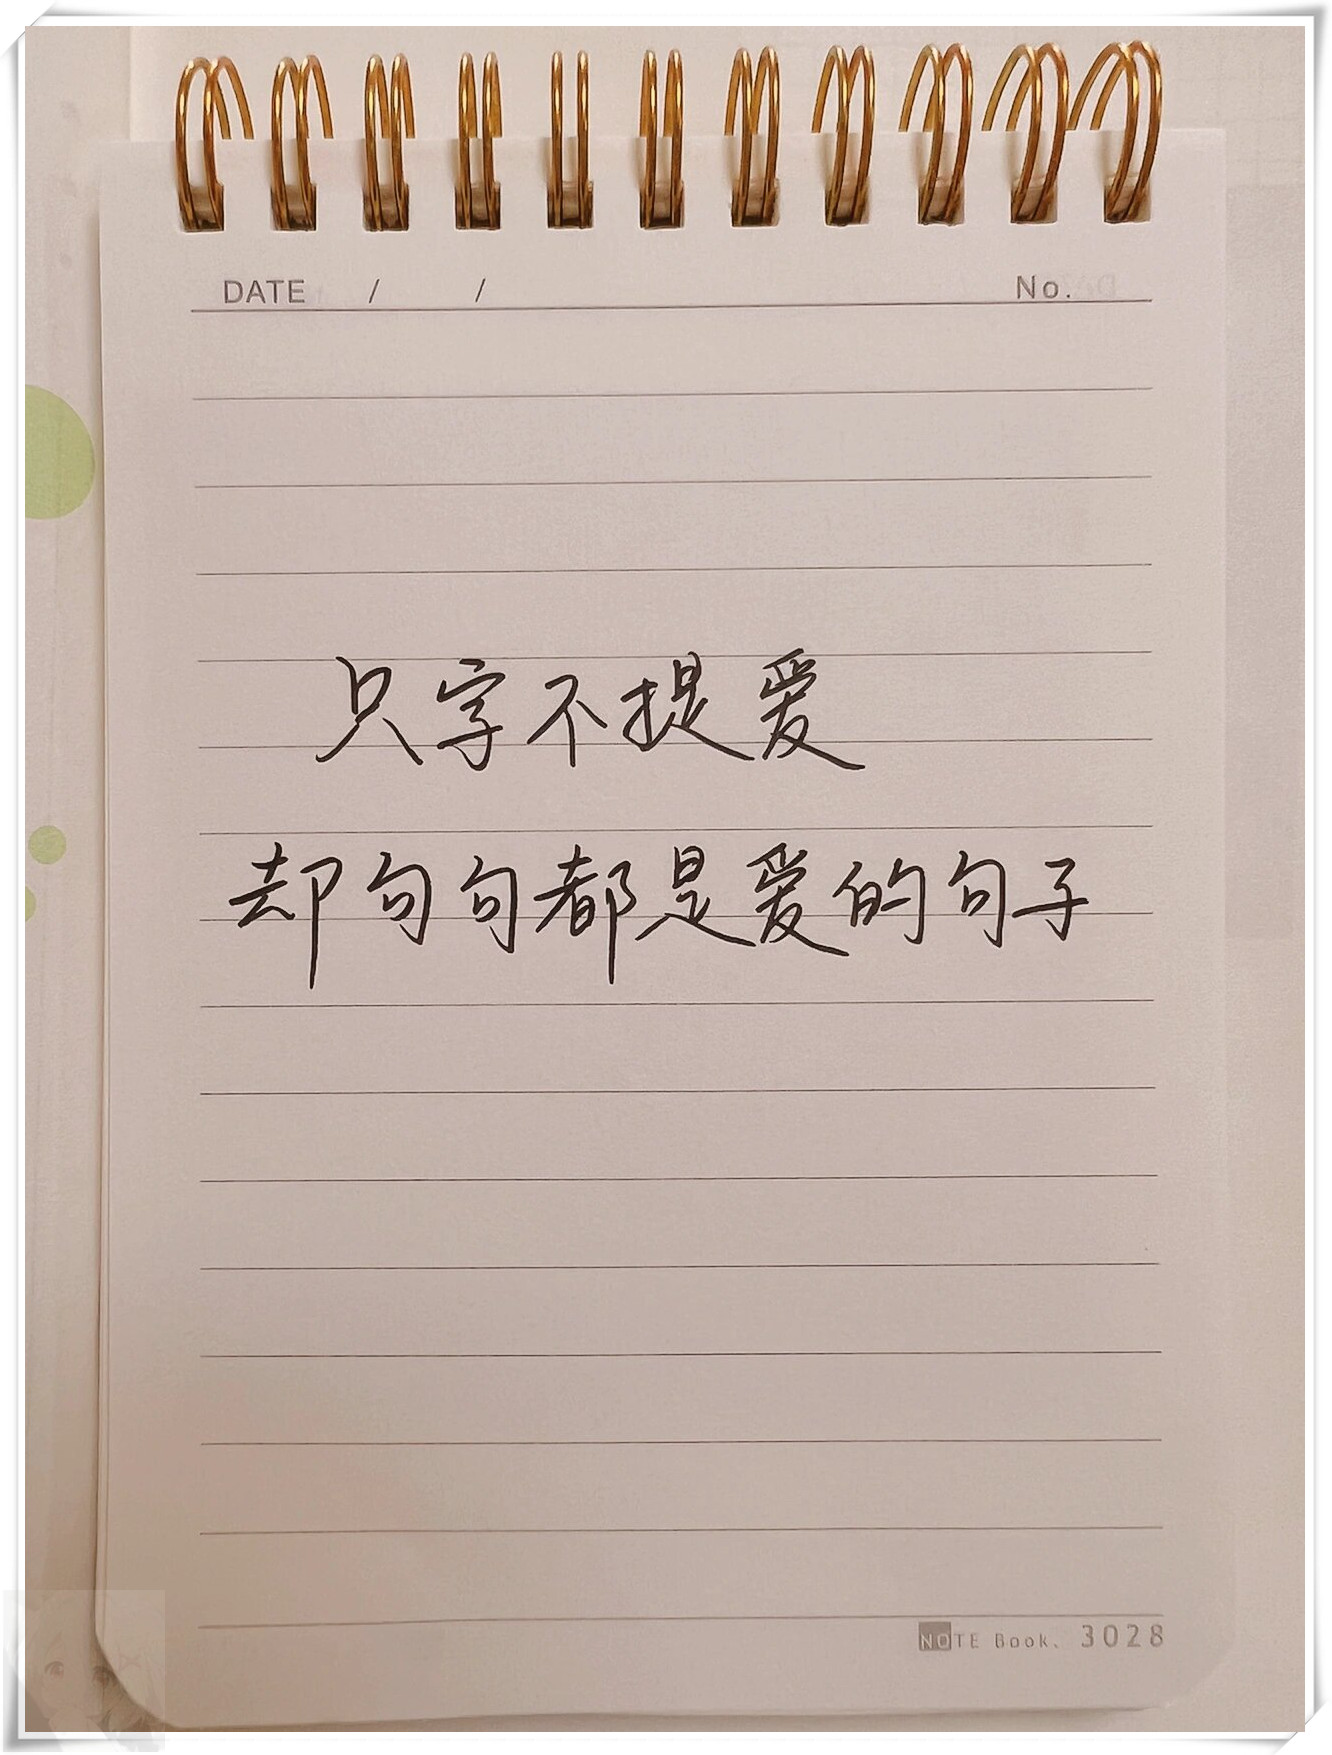 DATE / / No.
只字不提爱
却句句都是爱的句子
NOTE Book. 3028